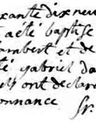 xante dix neuf
a été baptisé
ambert et de
té gabriel da
ont declaré
onnance Sr.